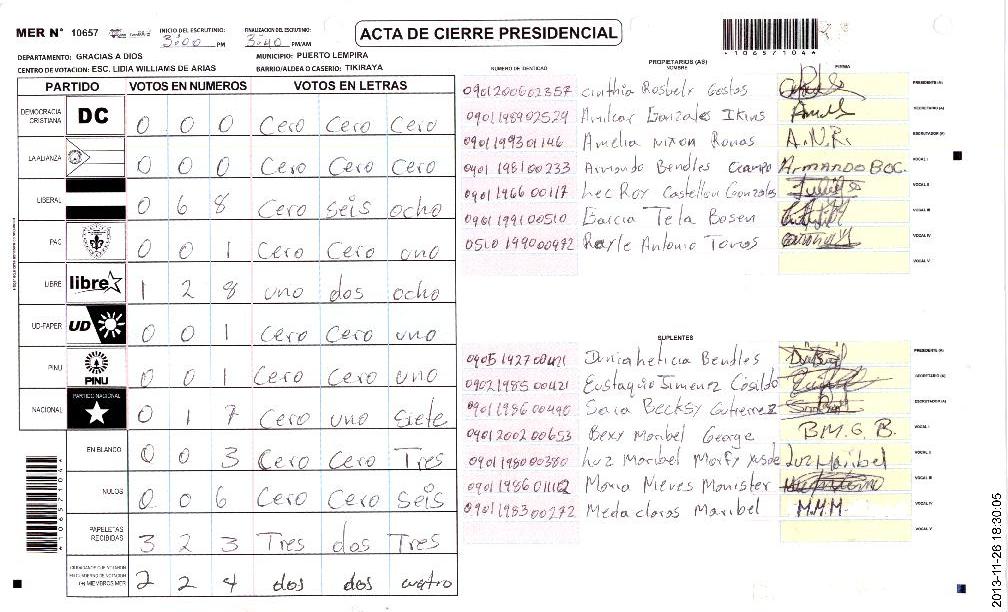 MER N° 10657
INICIO DEL ESCRUTINIO: 3:00 PM
FINALIZACION DEL ESCRUTINIO: 3:40 PM/AM
ACTA DE CIERRE PRESIDENCIAL
*10657104*
DEPARTAMENTO: GRACIAS A DIOS
MUNICIPIO: PUERTO LEMPIRA
CENTRO DE VOTACION: ESC. LIDIA WILLIAMS DE ARIAS
BARRIO/ALDEA O CASERIO: TIKIRAYA
PARTIDO VOTOS EN NUMEROS VOTOS EN LETRAS
DEMOCRACIA CRISTIANA DC 0 0 0 Cero Cero Cero
LA ALIANZA 0 0 0 Cero Cero Cero
LIBERAL 0 6 8 Cero seis ocho
PAC 0 0 1 Cero Cero uno
LIBRE libre 1 2 8 uno dos ocho
UD-FAPER UD 0 0 1 Cero Cero uno
PINU PINU 0 0 1 Cero Cero uno
NACIONAL PARTIDO NACIONAL 0 1 7 Cero uno siete
EN BLANCO 0 0 3 Cero Cero Tres
NULOS 0 0 6 Cero Cero seis
PAPELETAS RECIBIDAS 3 2 3 Tres dos Tres
CIUDADANOS QUE VOTARON EN CUADERNO DE VOTACION (+) MIEMBROS MER 2 2 4 dos dos cuatro
*10657104*
PROPIETARIOS (AS)
NUMERO DE IDENTIDAD NOMBRE FIRMA
0901200602357 Cinthia Rosbely PRESIDENTE (A)
0901198902529 Amilcar Gonzales SECRETARIO (A)
0901199301146 Amelia Nixon A.N.R. ESCRUTADOR (A)
0901198100233 Armando Bendles Ocampo ARMANDO BOC. VOCAL I
0901196600117 Castellon Gonzales VOCAL II
0901199100510 Garcia Tela Bosen VOCAL III
0510199000972 Antonio Torres VOCAL IV
VOCAL V
SUPLENTES
Bendles PRESIDENTE (A)
0902198500421 Eustaquio Jimenez Cosildo SECRETARIO (A)
0901198600440 Sara Becksy Gutierrez ESCRUTADOR (A)
0901200200653 Bexy Maribel George B.M.G.B. VOCAL I
0901198000380 Luz Maribel Luz Maribel VOCAL II
Maria Nieves VOCAL III
0901198300272 Maribel M.M.M. VOCAL IV
VOCAL V
2013-11-26 18:30:05